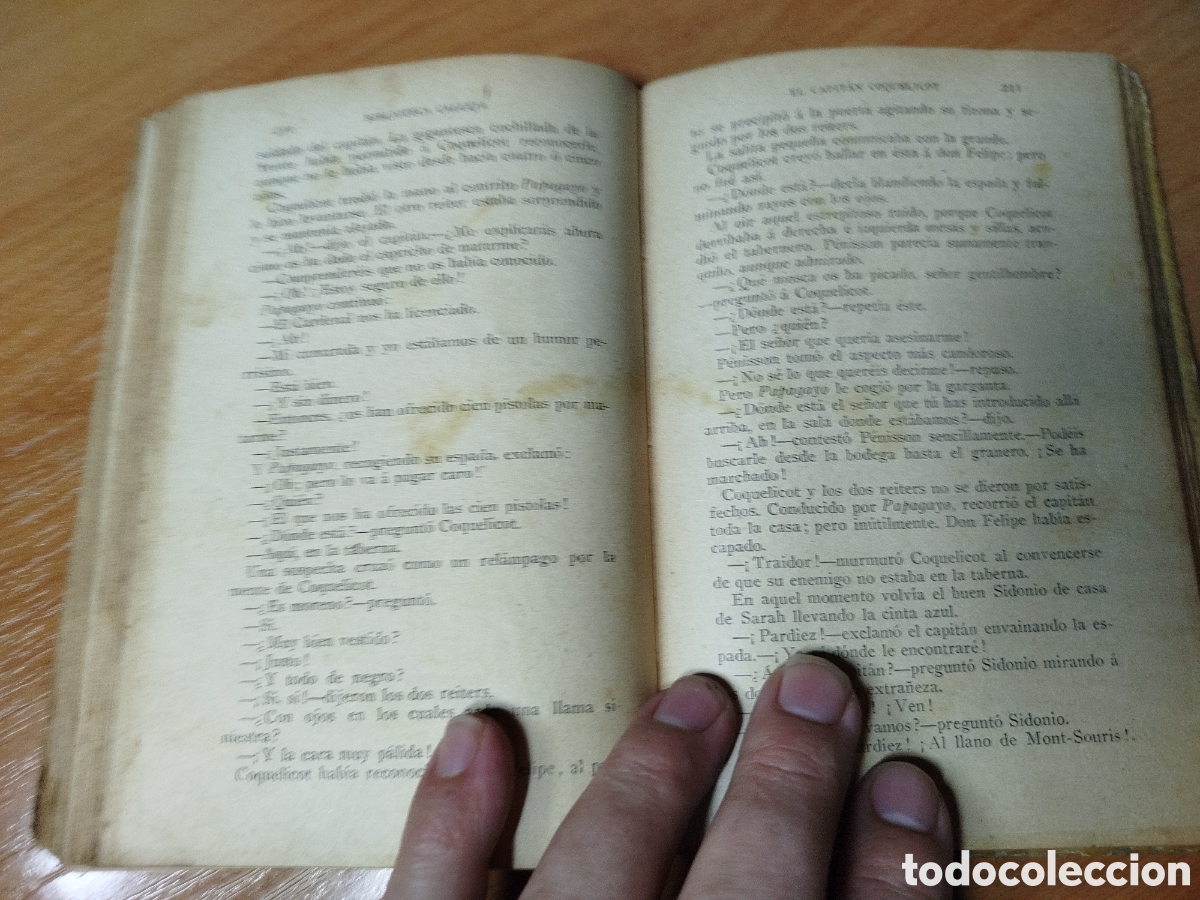 soldado del capitán. La gigantesca cuchillada de la
Coquelicot tendió la mano al contrito Papagayo y
le hizo levantarse. El otro reiter estaba sorprendido
y se mantenía alejado.
—¡Ah!—dijo el capitán.—¿Me explicarás ahora
cómo os ha dado el capricho de matarme?
—Comprenderéis que no os había conocido.
—¡Ah! ¡Estoy seguro de ello!
Papagayo continuó:
—El Cardenal nos ha licenciado.
—¡Ah!
—Mi camarada y yo estábamos de un humor pe-
rrísimo.
—Está bien.
—¡Y sin dinero!
—Entonces, ¿os han ofrecido cien pistolas por ma-
tarme?
—¡Justamente!
Y Papagayo, recogiendo su espada, exclamó:
—¡Oh, pero lo va á pagar caro!
—¿Quién?
—¡El que nos ha ofrecido las cien pistolas!
—¿Dónde está?—preguntó Coquelicot.
—Aquí, en la taberna.
Una sospecha cruzó como un relámpago por la
mente de Coquelicot.
—¿Es moreno?—preguntó.
—Sí.
—¿Muy bien vestido?
—¡Justo!
—¿Y todo de negro?
—¡Sí, sí!—dijeron los dos reiters.
—¿Con ojos en los cuales una llama si-
niestra?
—¡Y la cara muy pálida!
Coquelicot había reconoc ipe, al p
EL CAPITÁN COQUELICOT 221
se precipitó á la puerta agitando su tizona y se-
guido por los dos reiters.
La salita pequeña comunicaba con la grande.
Coquelicot creyó hallar en ésta á don Felipe; pero
no fué así.
—¿Dónde está?—decía blandiendo la espada y ful-
minando rayos con los ojos.
Al oir aquel estrepitoso ruido, porque Coquelicot
derribaba á derecha é izquierda mesas y sillas, acu-
dió el tabernero. Pénisson parecía sumamente tran-
quilo, aunque admirado.
—¿Qué mosca os ha picado, señor gentilhombre?
—preguntó á Coquelicot.
—¿Dónde está?—repetía éste.
—Pero ¿quién?
—¡El señor que quería asesinarme!
Pénisson tomó el aspecto más candoroso.
—¡No sé lo que queréis decirme!—repuso.
Pero Papagayo le cogió por la garganta.
—¿Dónde está el señor que tú has introducido allá
arriba, en la sala donde estábamos?—dijo.
—¡Ah!—contestó Pénisson sencillamente.—Podéis
buscarle desde la bodega hasta el granero. ¡Se ha
marchado!
Coquelicot y los dos reiters no se dieron por satis-
fechos. Conducido por Papagayo, recorrió el capitán
toda la casa; pero inútilmente. Don Felipe había es-
capado.
—¡Traidor!—murmuró Coquelicot al convencerse
de que su enemigo no estaba en la taberna.
En aquel momento volvía el buen Sidonio de casa
de Sarah llevando la cinta azul.
—¡Pardiez!—exclamó el capitán envainando la es-
pada.—¡Y dónde le encontraré!
—¿A itán?—preguntó Sidonio mirando á
extrañeza.
! ¡Ven!
vamos?—preguntó Sidonio.
rdiez! ¡Al llano de Mont-Souris!
todocoleccion